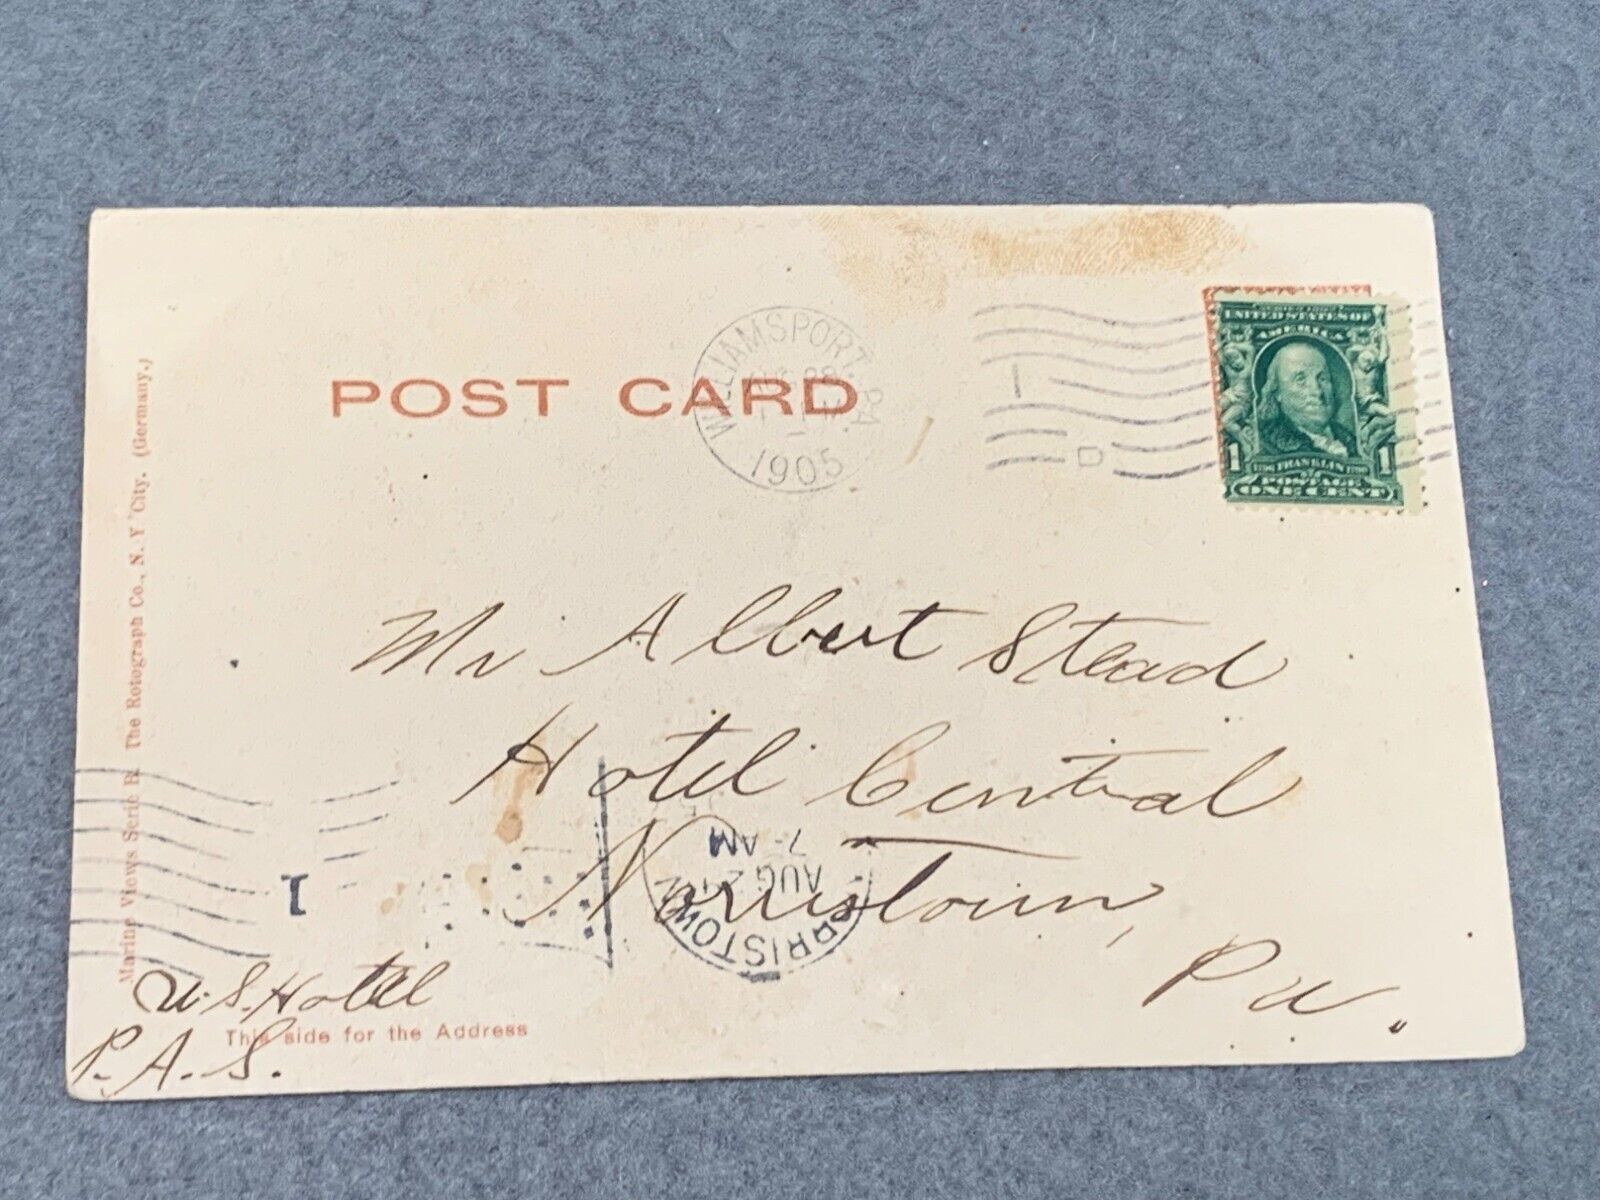 POST CARD
WILLIAMSPORT, PA.
AUG 28
1905
1
D
UNITED STATES OF
AMERICA
1 1790 FRANKLIN 1790 1
POSTAGE
ONE CENT
Mr Albert Stead
Hotel Central
Norristown,
Pa.
NORRISTOWN
AUG 29
7-AM
1
U.S. Hotel
P.A.S.
This side for the Address
Marine Views Serie B. The Rotograph Co., N. Y City. (Germany.)